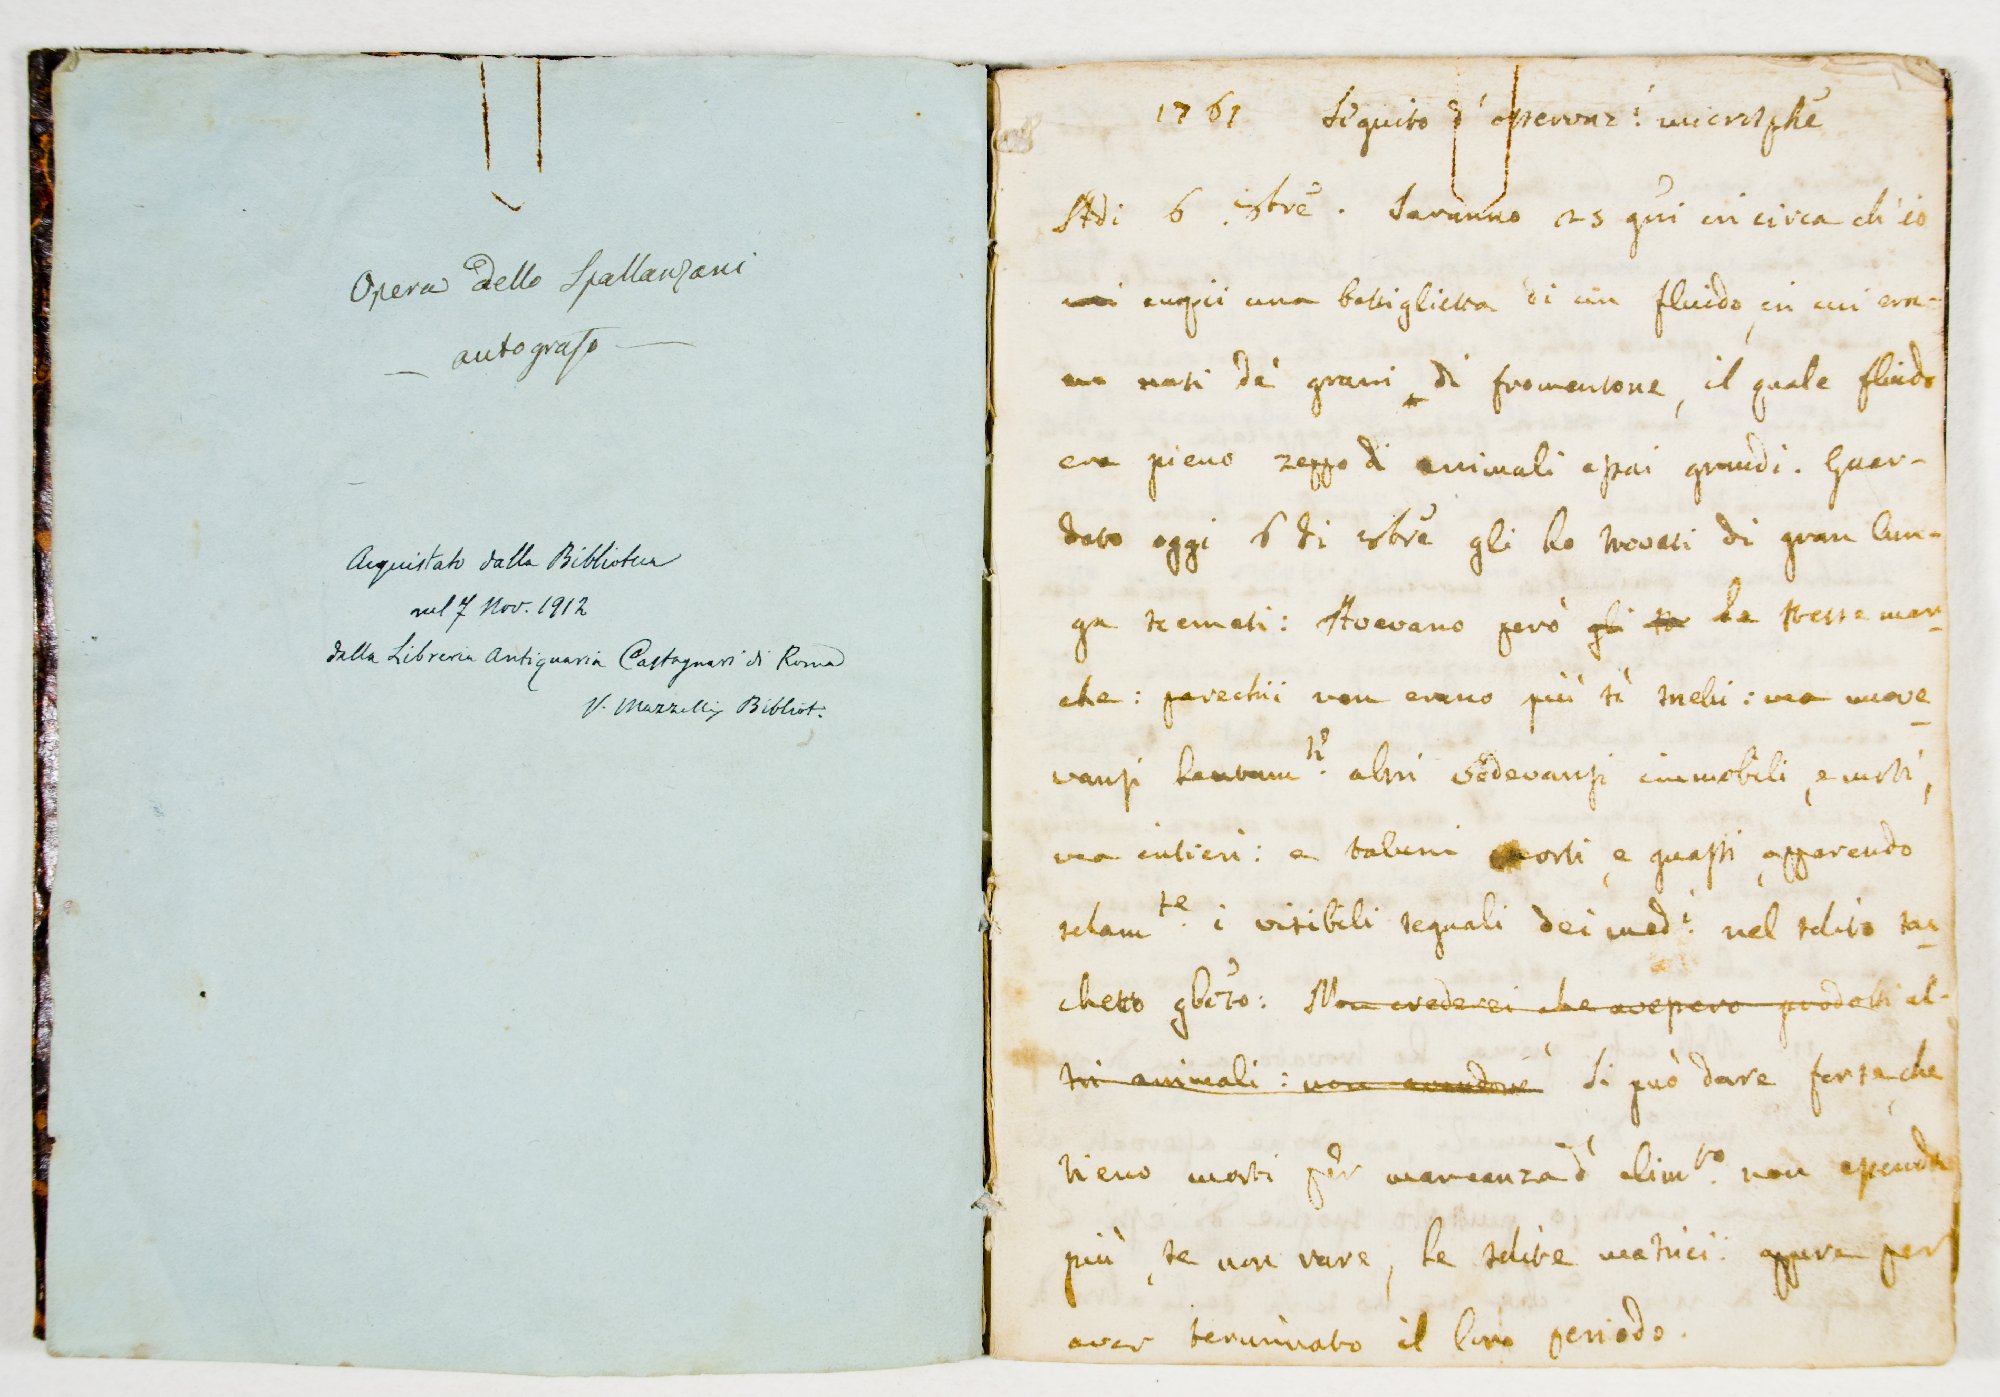 Opera dello Spallanzani
— autografo —
Acquistato dalla Biblioteca
nel 7 Nov. 1912
dalla Libreria Antiquaria Castagnari di Roma
V. Mazzelli Bibliot.
1761 Seguito d' osservaz.i microsphe
Adi 6 . Saranno 25 gni in circa ch'io
empii una bottiglietta di un fluido, in cui era-
no nati de' grani di fromentone, il quale fluido
era pieno zeppo di animali assai grandi. Guar-
dato oggi 6 di gli ho trovati di gran lun-
ga scemati: Avevano però gli le stesse mar-
che: parechii non erano più sì snelli: ma move-
vansi lentam.ti altri vedevansi immobili, e morti,
ma intieri: e taluni morti, e guasti, apparendo
solam.te i visibili segnali dei med.i nel solito sac-
chetto : Non crederei che avessero prodotti al-
tri animali: non avendone Si può dare forse, che
sieno morti per mancanza d' alim.to non essendo
più, se non rare, le solite matrici: oppure per
aver terminato il loro periodo.